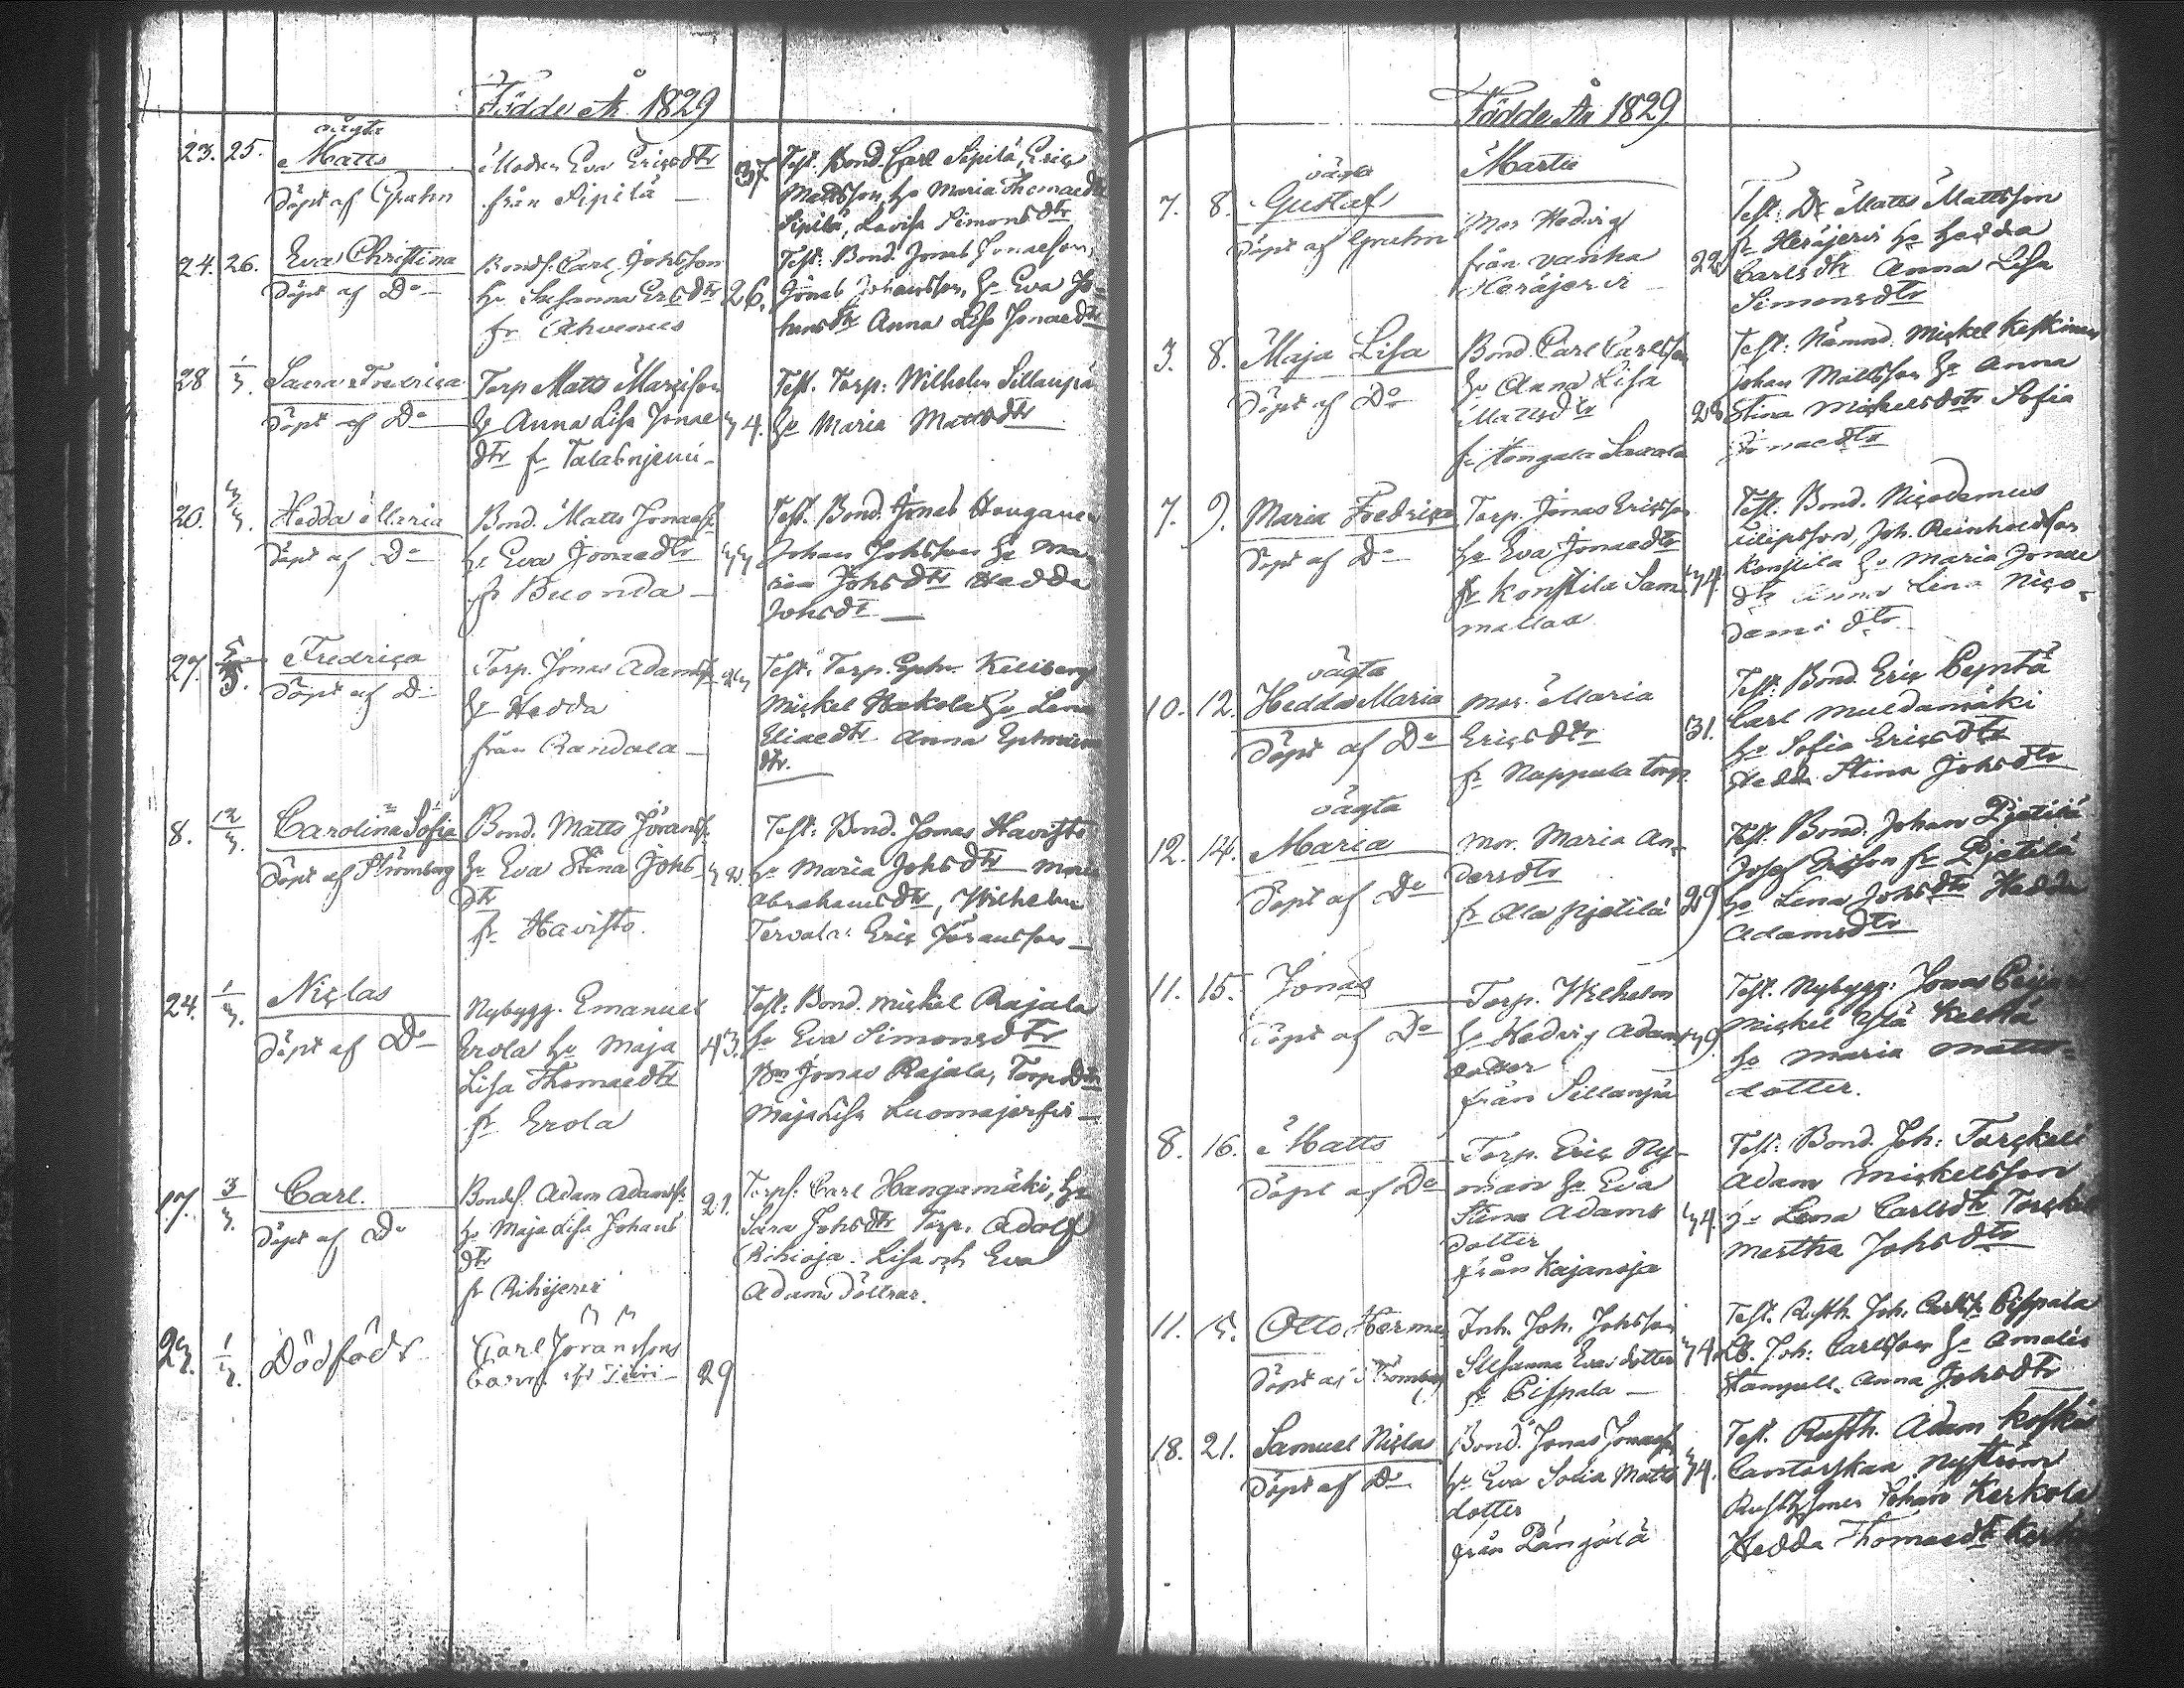 Födde År 1829
23. 25.
oägte
Matts
Döpt af Grahn
Modren Eva Ericsdtr
från Sipilä
37
Test. Bond. Carl Sipilä, Eric
Mattsson, Ho Maria Thomaedtr
Sipilä, Lovisa Simonsdtr
24. 26.
Eva Christina
Döpt af Do
Bondes. Carl Johsson
Ho Susanna Ersdtr
fr Ahvenus
26.
Test: Bond. Jonas Jonaesson,
Jonas Johansson, Ho Eva Jo-
hansdtr Anna Lisa Jonaedtr
28 1/3.
Sara Fredrica
Döpt af Do
Torp Matts
Ho Anna Lisa Jonae
dtr fr
34.
Test. Torp: Wilhelm Sillanpää
Ho Maria Mattsdtr
20. 3/3.
Hedda Maria
Döpt af Do
Bond. Matts Jonaess.
Ho Eva Jonaedtr
fr Buonda
33
Test. Bond. Jonas
Johan Johsson Ho Ma-
ria Johsdtr Hedda
Johsdtr
27. 5/3.
Fredrica
Döpt af Do
Torp. Jonas Adamss.
Ho Hedda
från Randala
Test: Torp. Ephr. Keliberg
Mickel Hakola Ho Lena
Eliaedtr Anna Ephraims
dtr.
8. 12/3.
Carolina Sofia
Döpt af Strömberg
Bond. Matts Jöranss.
Ho Eva Stina Johs
dtr
fr Havisto.
Test: Bond. Jonas Havisto
Ho Maria Johsdtr Maria
Abrahamsdtr, Wilhelm
Tervala: Eric Jöransson
24. 1/3.
Niclas
Döpt af Do
Nybygg. Emanuel
Erola Ho Maja
Lisa Thomaedtr
fr Erola
43.
Test: Bond. Mickel Rajala
Ho Eva Simonsdtr
Bn Jonas Rajala, Torpdtr
Maja Lisa Luomajerfvi
17. 3/3.
Carl.
Döpt af Do
Bondes. Adam Adamss.
Ho Maja Lisa Johans
dtr
fr Rihijervi
21.
Torps: Carl Hangamäki, Ho
Sara Johsdtr Torp. Adolf
Rihioja. Lisa och Eva
Adams döttrar.
1/3.
Dödfödt
Carl Jöranssons
barn fr
29
Födde År 1829
Martii
7. 8.
oägta
Gustaf
Döpt af Grahn
Mor Hedvig
från Vanha
Heräjervi
22
Test: Dr Matts Mattsson
fr Heräjervi Ho Hedda
Carlsdtr Anna Lisa
Simonsdtr
3. 8.
Maja Lisa
Döpt af Do
Bond. Carl Carlsson
Ho Anna Lisa
Mattsdtr
fr Kongala Savola
28
Test: Nämnd. Mickel Keskinen
Johan Mattsson Ho Anna
Stina Mickelsdotr Sofia
Jonaedtr
7. 9.
Maria Fredrica
Döpt af Do
Torp. Jonas Ericsson
Ho Eva Jonaedtr
fr Konttila Sam-
mallaa
34.
Test. Bond. Nicodemus
Filipsson, Joh. Reinholdson
Konttila Ho Maria Jonae
dtr Anna Lena Nico-
demi dtr
10. 12.
oägta
Hedda Maria
Döpt af Do
Mor. Maria
Ericsdtr
fr Nappula torp
31.
Test: Bond. Eric Pentä
Carl Muldamäki
Ho Sofia Ericsdtr
Hedda Stina Johsdtr
12. 14.
oägta
Maria
Döpt af Do
Mor. Maria An-
dersdtr
fr Ala Pjetilä
29
Test. Bond. Johan Pjetilä
Josef Ericson fr Pjetilä
Ho Lena Johsdtr Hedda
Adamsdtr
11. 15.
Jonas
Döpt af Do
Torp. Wilhelm
Ho Hedvig Adams
dotter
från Sillanpä
39
Test. Nybygg: Jonas
Mickel Ylä Keltta
Ho Maria Matts-
dotter.
8. 16.
Matts
Döpt af Do
Torp. Eric Ny-
man Ho Eva
Stina Adams
dotter
från Kajanoja
34
Test: Bond. Joh: Torckeli
Adam Mickelsson
Ho Lena Carlsdtr Torckel
Mertha Johsdtr
11. 15.
Otto Herman
Döpt af Strömberg
Inh. Joh. Johsson
Susanna Evasdotter
fr Pispala
34
Test. Rusth. Joh. Carlss. Pispala
Joh: Carlsson Ho Amalia
Hampull. Anna Johsdtr
18. 21.
Samuel Niclas
Döpt af Do
Bond. Jonas Jonaess
Ho Eva Sofia Matts
dotter
från Pängälä
34.
Test. Rusth. Adam Koskis
Cantorskan Nyström
Rusth. Sonen Johan Kerkola
Hedda Thomaedtr